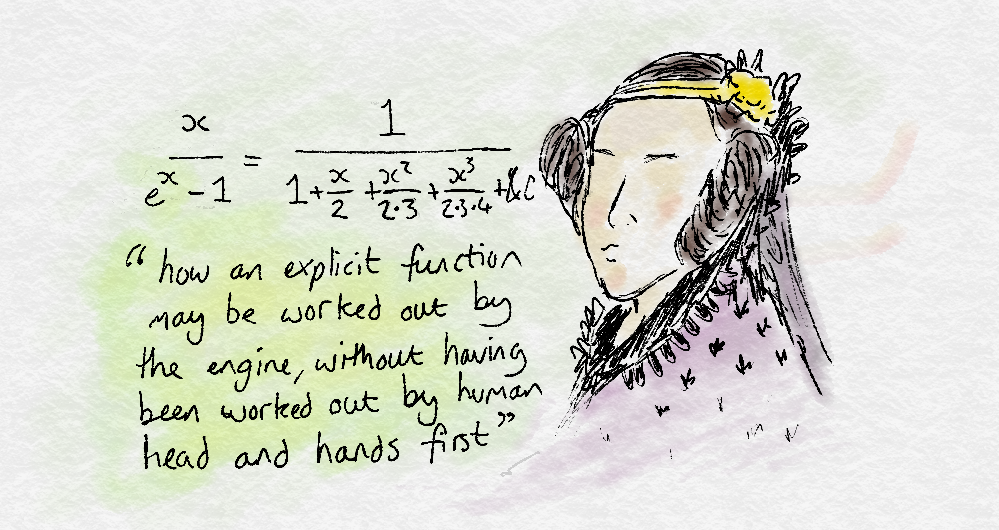 x/(e^x - 1) = 1/(1 + x/2 + x²/2·3 + x³/2·3·4 + &c
“how an explicit function
may be worked out by
the engine, without having
been worked out by human
head and hands first”